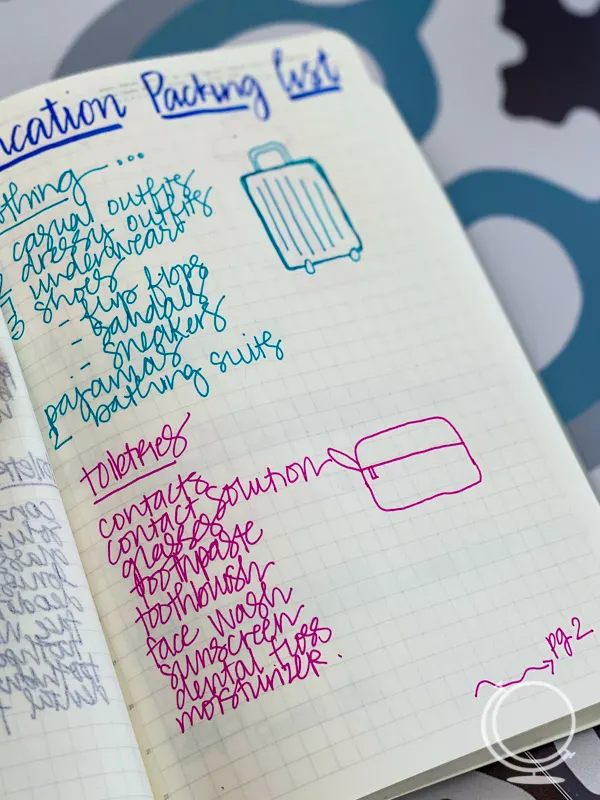 cation Packing list
othing...
casual outfits
dressy outfits
underwear
3 shoes
- flip flops
- sandals
- sneakers
pajamas
2 bathing suits
toiletries
contacts
contact solution
glasses
toothpaste
toothbrush
face wash
sunscreen
dental floss
moisturizer.
pg 2